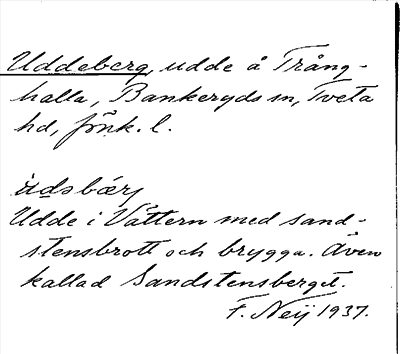 Uddeberg, udde å Trång-
halla, Bankeryds sn, Tveta
hd, Jönk. l.
ùdsbærj
Udde i Vättern med sand-
stensbrott och brygga. Även
kallad Sandstensberget.
F. Neij 1937.